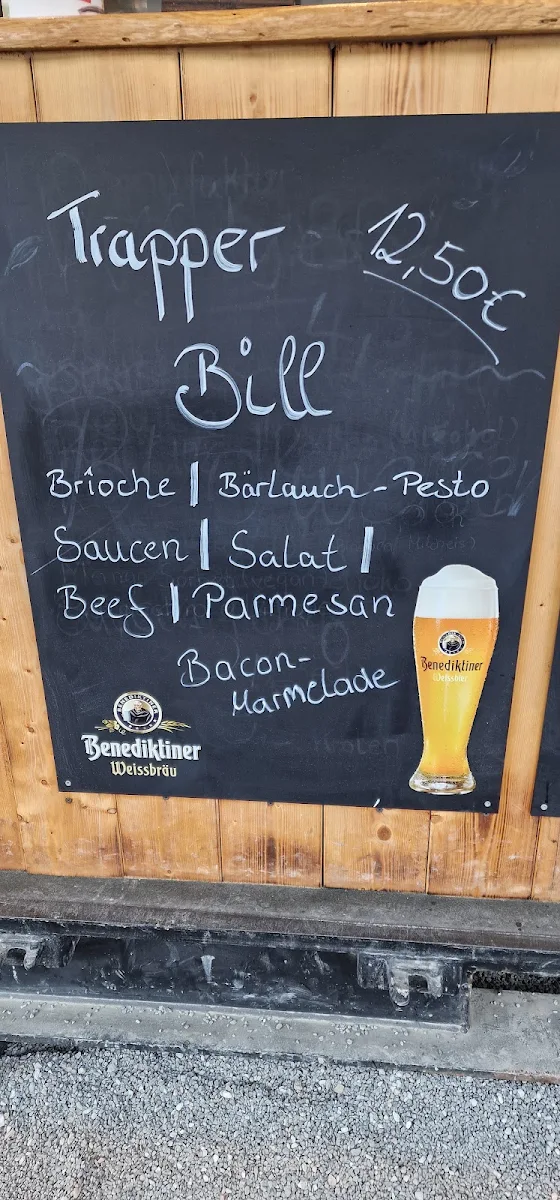 Trapper 12,50€
Bill
Brioche | Bärlauch - Pesto
Saucen | Salat |
Beef | Parmesan
Bacon-
Marmelade
Benediktiner
Weissbräu
Benediktiner
Weissbräu